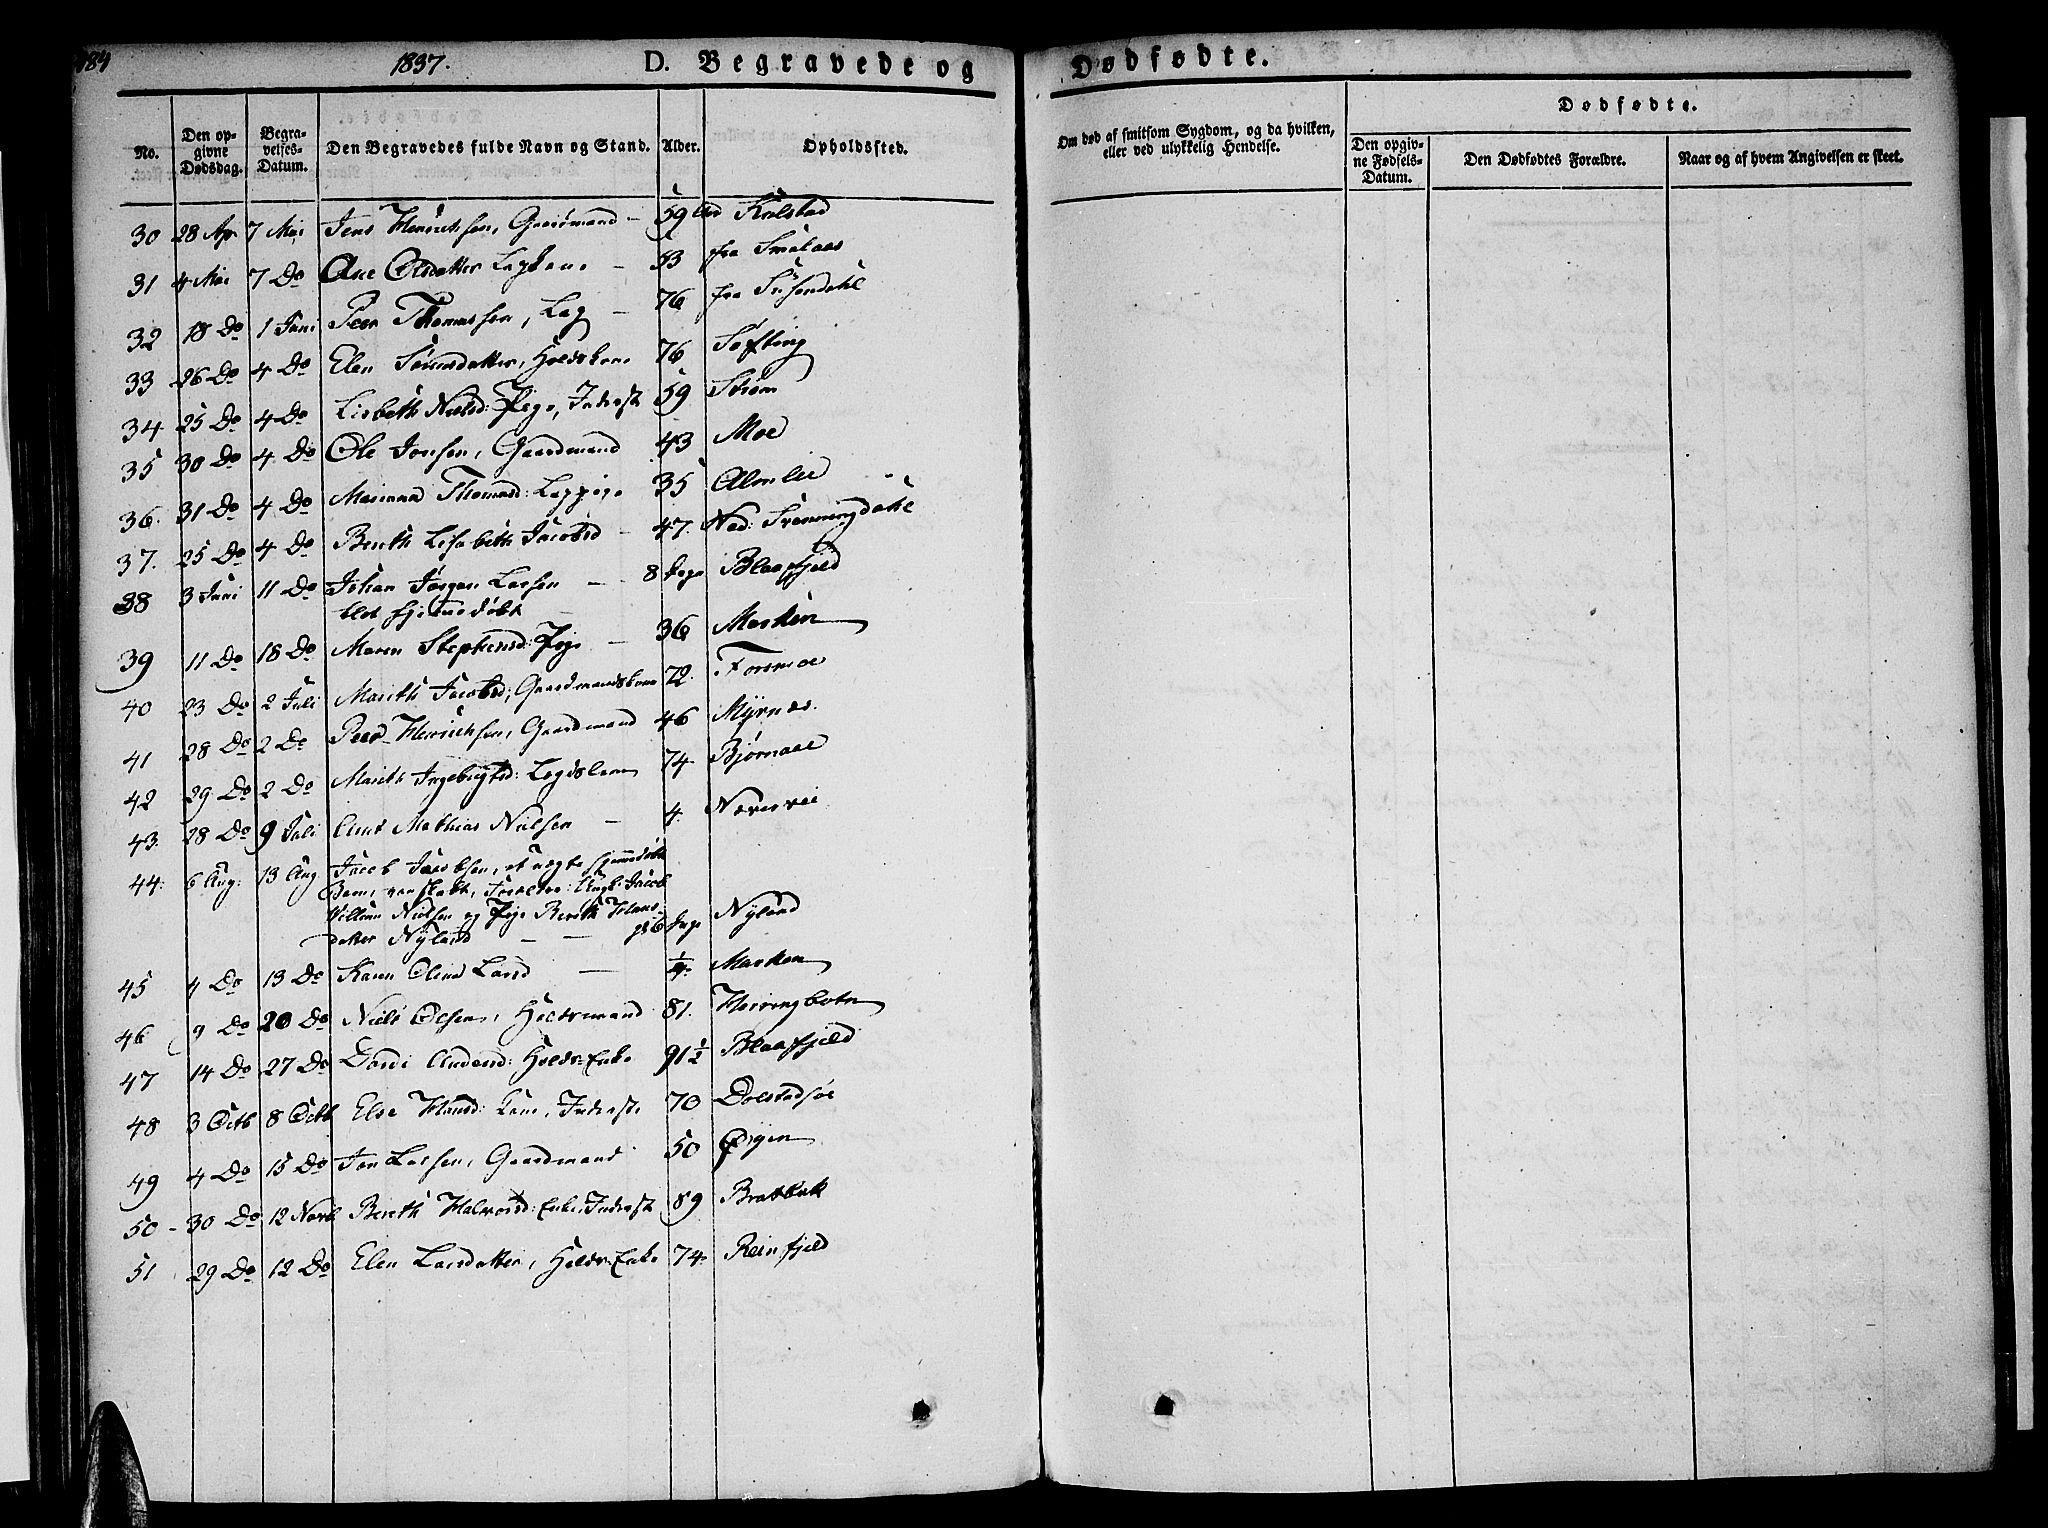 184 1837. D. Begravede og Dødfødte.
No. Den opgivne Dødsdag. Begravelses-Datum. Den Begravedes fulde Navn og Stand. Alder. Opholdssted. Om død af smitsom Sygdom, og da hvilken, eller ved ulykkelig Hendelse. Dødfødte. Den opgivne Fødsels-Datum. Den Dødfødtes Forældre. Naar og af hvem Angivelsen er skeet.
30 28 Apr 7 Mai Jens Henrichsen, Gaardmand - 59 Kulstad
31 4 Mai 7 Do Ane Olsdatter - 53 fra Smalaas
32 18 Do 1 Juni Peer Thomassen, Lap - 76 fra Susendahl
33 26 Do 4 Do Elen Sørensdatter, 76 Søfting
34 25 Do 4 Do Lisbeth Nielsd: Pige, Inderst 59 Strøm
35 30 Do 4 Do Ole Jonsen, Gaardmand 43 Moe
36. 31 Do 4 Do Marianna Thomasd: Lappige 35 Almlie
37. 25 Do 4 Do Berith Lisabeth Jacobsd - 47. Ned: Svenningdahl
38 3 Juni 11 Do Johan Jørgen Larsen - 8 Dage Blaafjeld
blot hjemmedøbt
39 11 Do 18 Do Maren Stephensd: Pige - 36 Marken
40 23 Do 2 Juli Marith Jacobsd; Gaardmandskone 72. Forsmoe
41 28 Do 2 Do Peer Henrichsen, Gaardmand 46 Myrnes.
42 29 Do 2 Do Marith Ingebrigtsd: 74 Bjørnaae
43. 28 Do 9 Juli Arnt Mathias Nielsen - 4. Næverveie
44: 6 Aug: 13 Aug Jacob Jacobsen, et uægte hjemmedøbt
Barn, Forældre: Jacob
William Nielsen og Pige Berith Hans-
datter Nyland - - 6 Dage Nyland
45 4 Do 13 Do Karen Olina Larsd - Marken
46 9 Do 20 Do Niels Olsen, 81. Herringbotn
47 14 Do 27 Do Andersd: Holds-Enke 91 1/2 Blaafjeld
48 3 Octb 8 Octb Else Hansd: Kone, Inderste 70 Dolstadsøe
49 4 Do 15 Do Jon Larsen, Gaardmand 50 Øyen
50 - 30 Do 12 Novb Berith Halvorsd: Enke, Inderst 89 Bratbak
51 29 Do 12 Do Elen Larsdatter, Holds-Enke 74. Reinfjeld